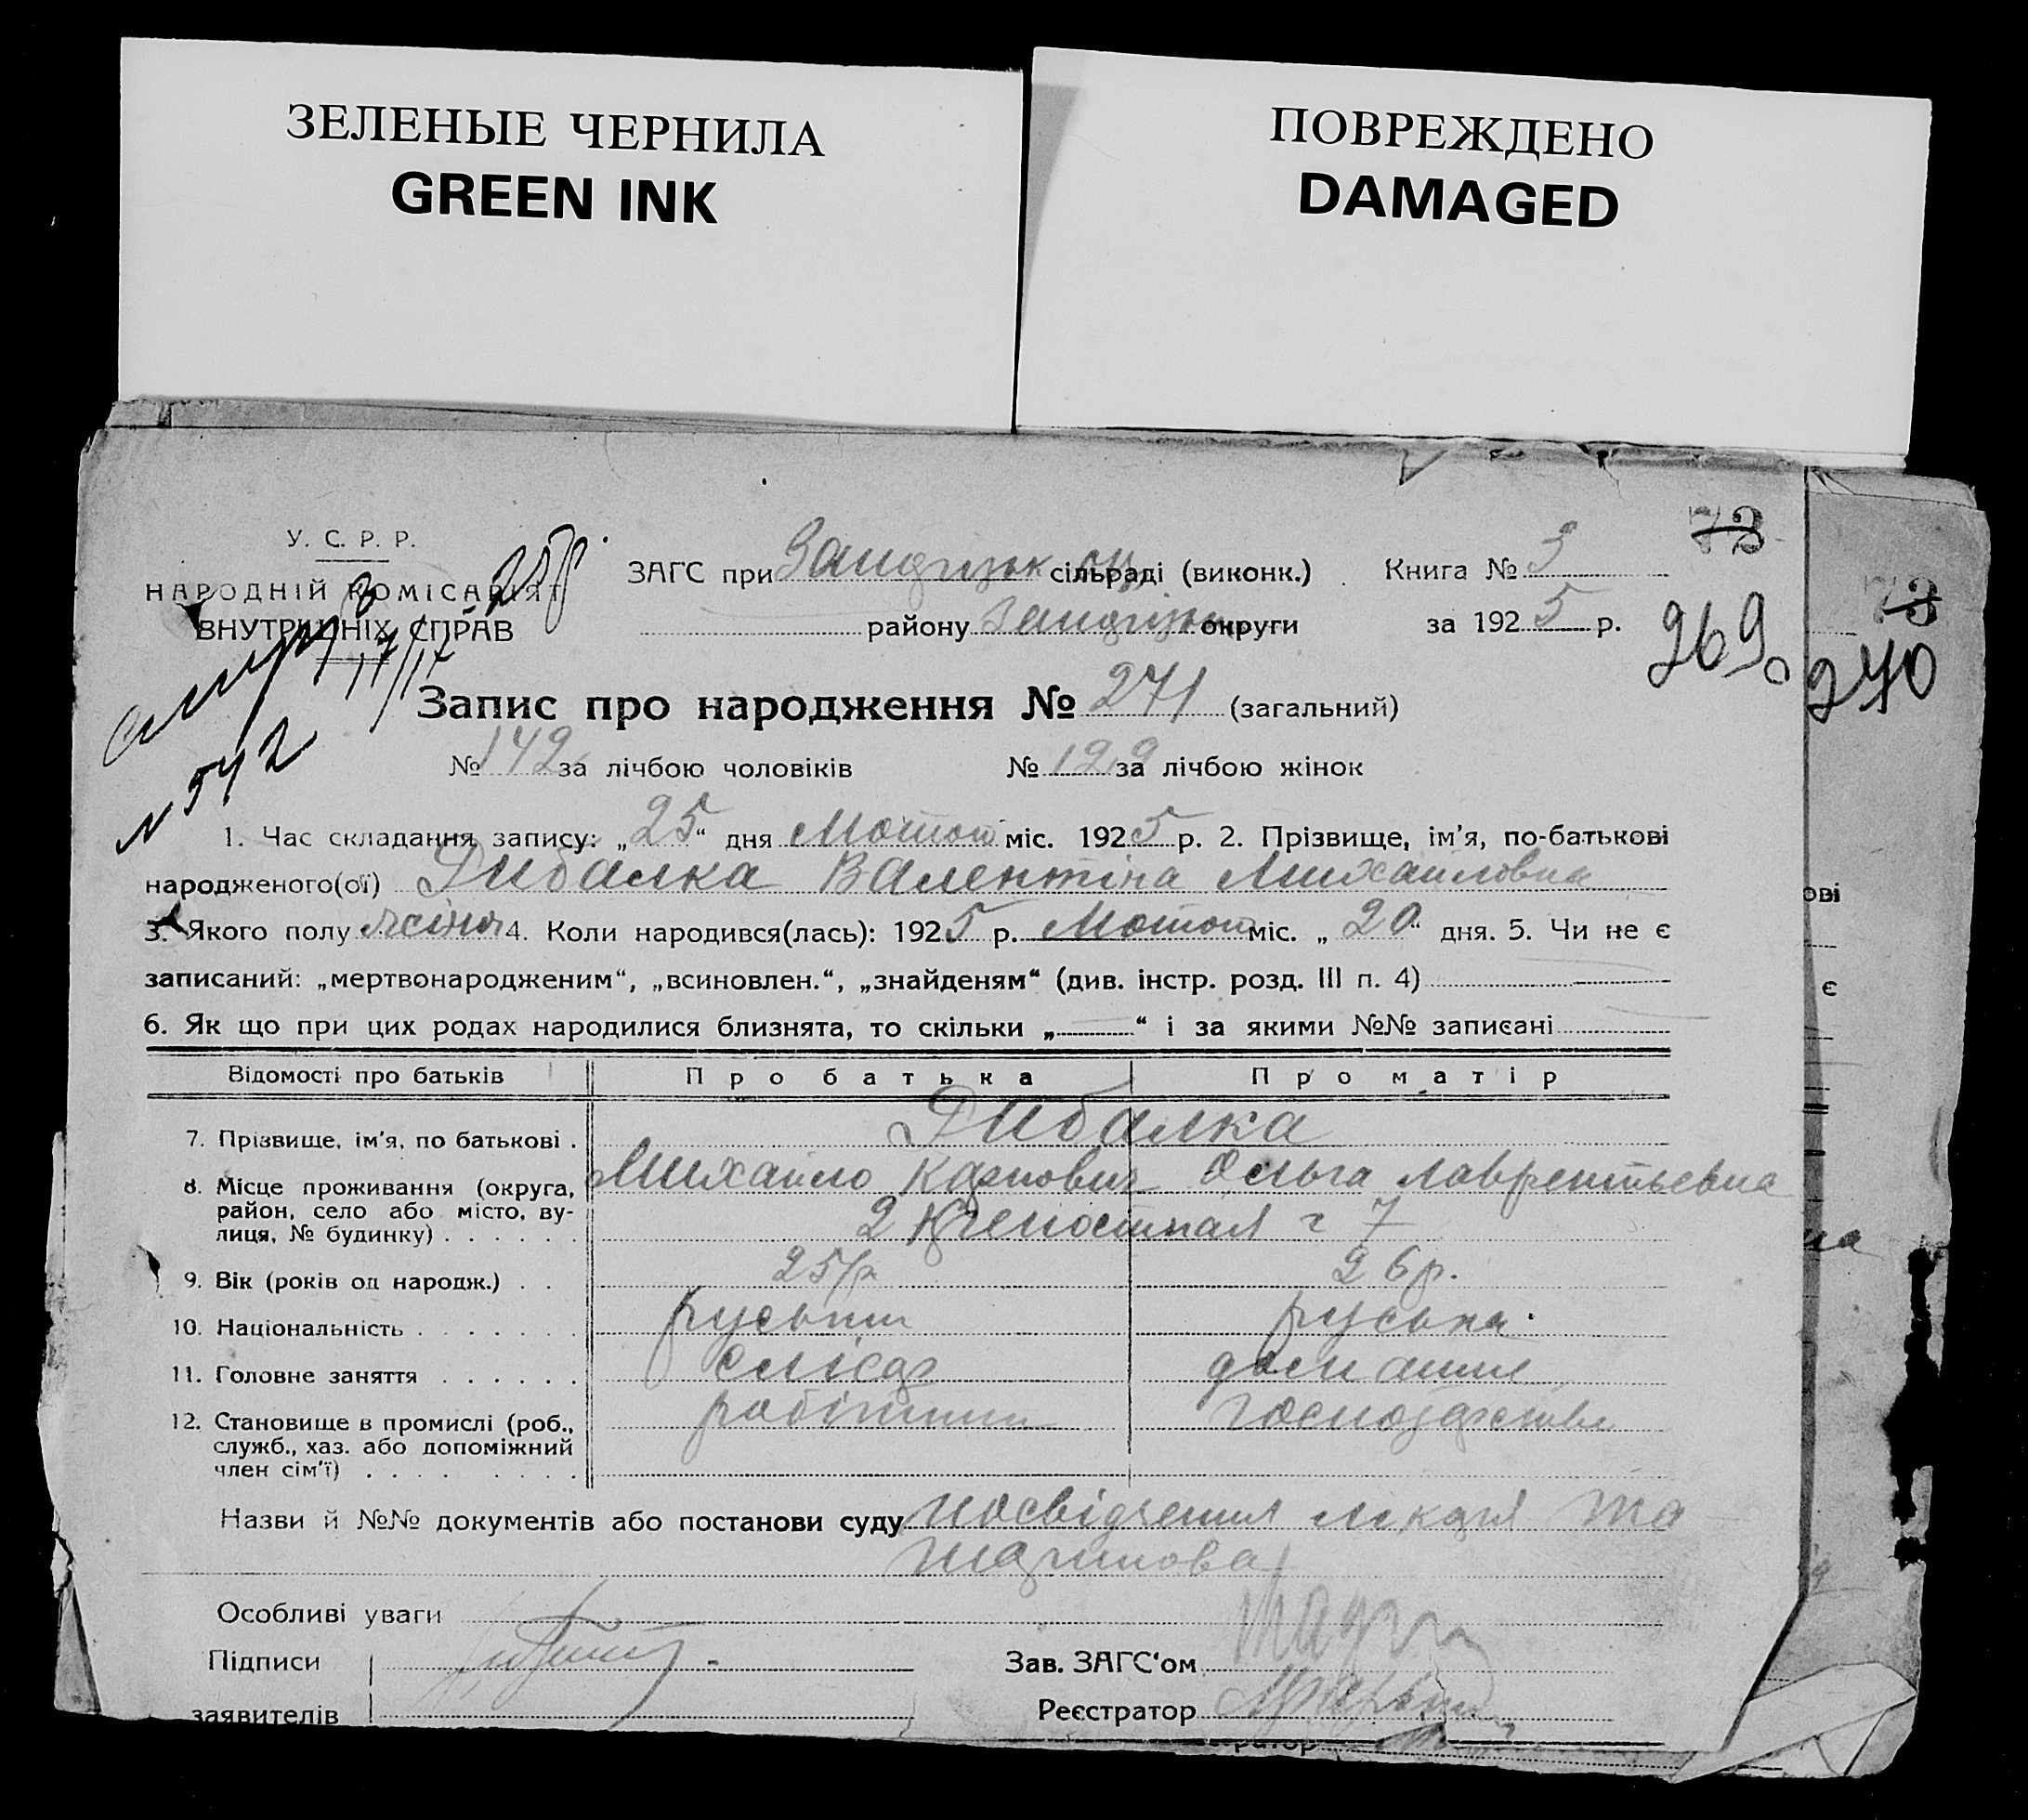 ЗЕЛЕНЫЕ ЧЕРНИЛА
GREEN INK
ПОВРЕЖДЕНО
DAMAGED
У. С. Р. Р.
НАРОДНІЙ КОМІСАРІЯТ
ВНУТРІШНІХ СПРАВ
ЗАГС при сільраді (виконк.) Книга № 3
району округи за 1925 р.
73
269
73
270
Запис про народження № 271 (загальний)
№ 142 за лічбою чоловіків № 129 за лічбою жінок
N 542
1. Час складання запису: „25“ дня Лютого міс. 1925 р. 2. Прізвище, ім'я, по-батькові
народженого(ої) Рибалка Валентіна Михайловна
3. Якого полу жіноч 4. Коли народився(лась): 1925 р. Лютого міс. „20“ дня. 5. Чи не є
записаний: „мертвонародженим“, „всиновлен.“, „знайденям“ (див. інстр. розд. III п. 4)
6. Як що при цих родах народилися близнята, то скільки „—“ і за якими №№ записані
Відомості про батьків Про батька Про матір
7. Прізвище, ім'я, по батькові . Рибалка
Михайло Карпович Ольга Лаврентьевна
8. Місце проживання (округа,
район, село або місто, ву-
лиця, № будинку) . . . . . . 2 Крепостная ч 7
9. Вік (років од народж.) . . 25 р. 26 р.
10. Національність . . . . . . . руський руська.
11. Головне заняття . . . . . . слюсар домашнє
12. Становище в промислі (роб., робітник господарство
служб., хаз. або допоміжний
член сім'ї) . . . . . . . . .
Назви й №№ документів або постанови суду посвідчення лікаря та
Особливі уваги
Підписи
заявителів
Зав. ЗАГС‘ом
Реєстратор